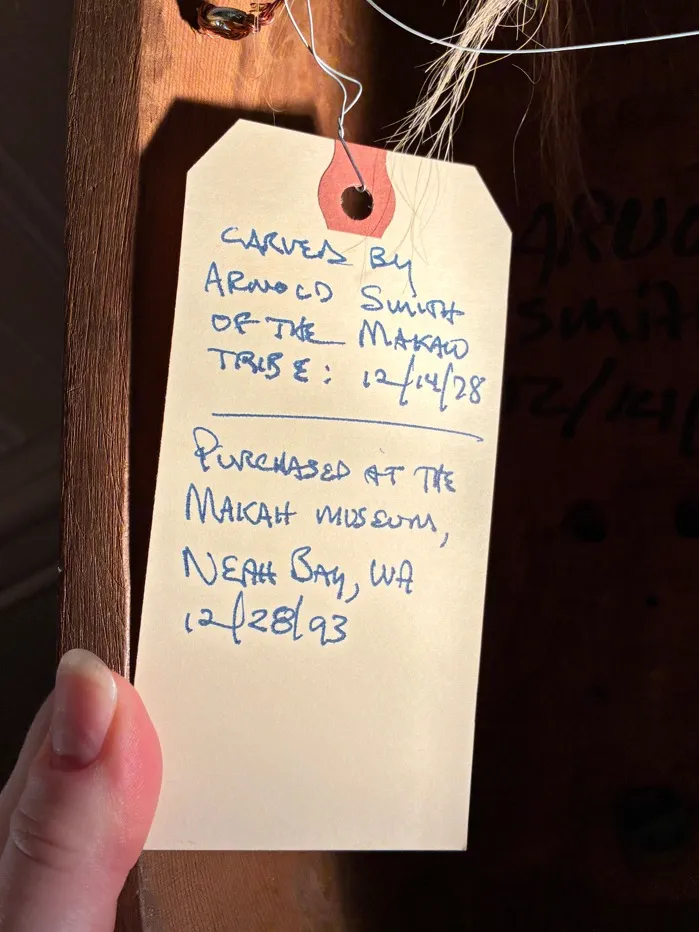 CARVED BY
ARNOLD SMITH
OF THE MAKAW
TRIBE: 12/14/28
PURCHASED AT THE
MAKAH MUSEUM,
NEAH BAY, WA
12/28/93
ARNO
Smit
12/14/